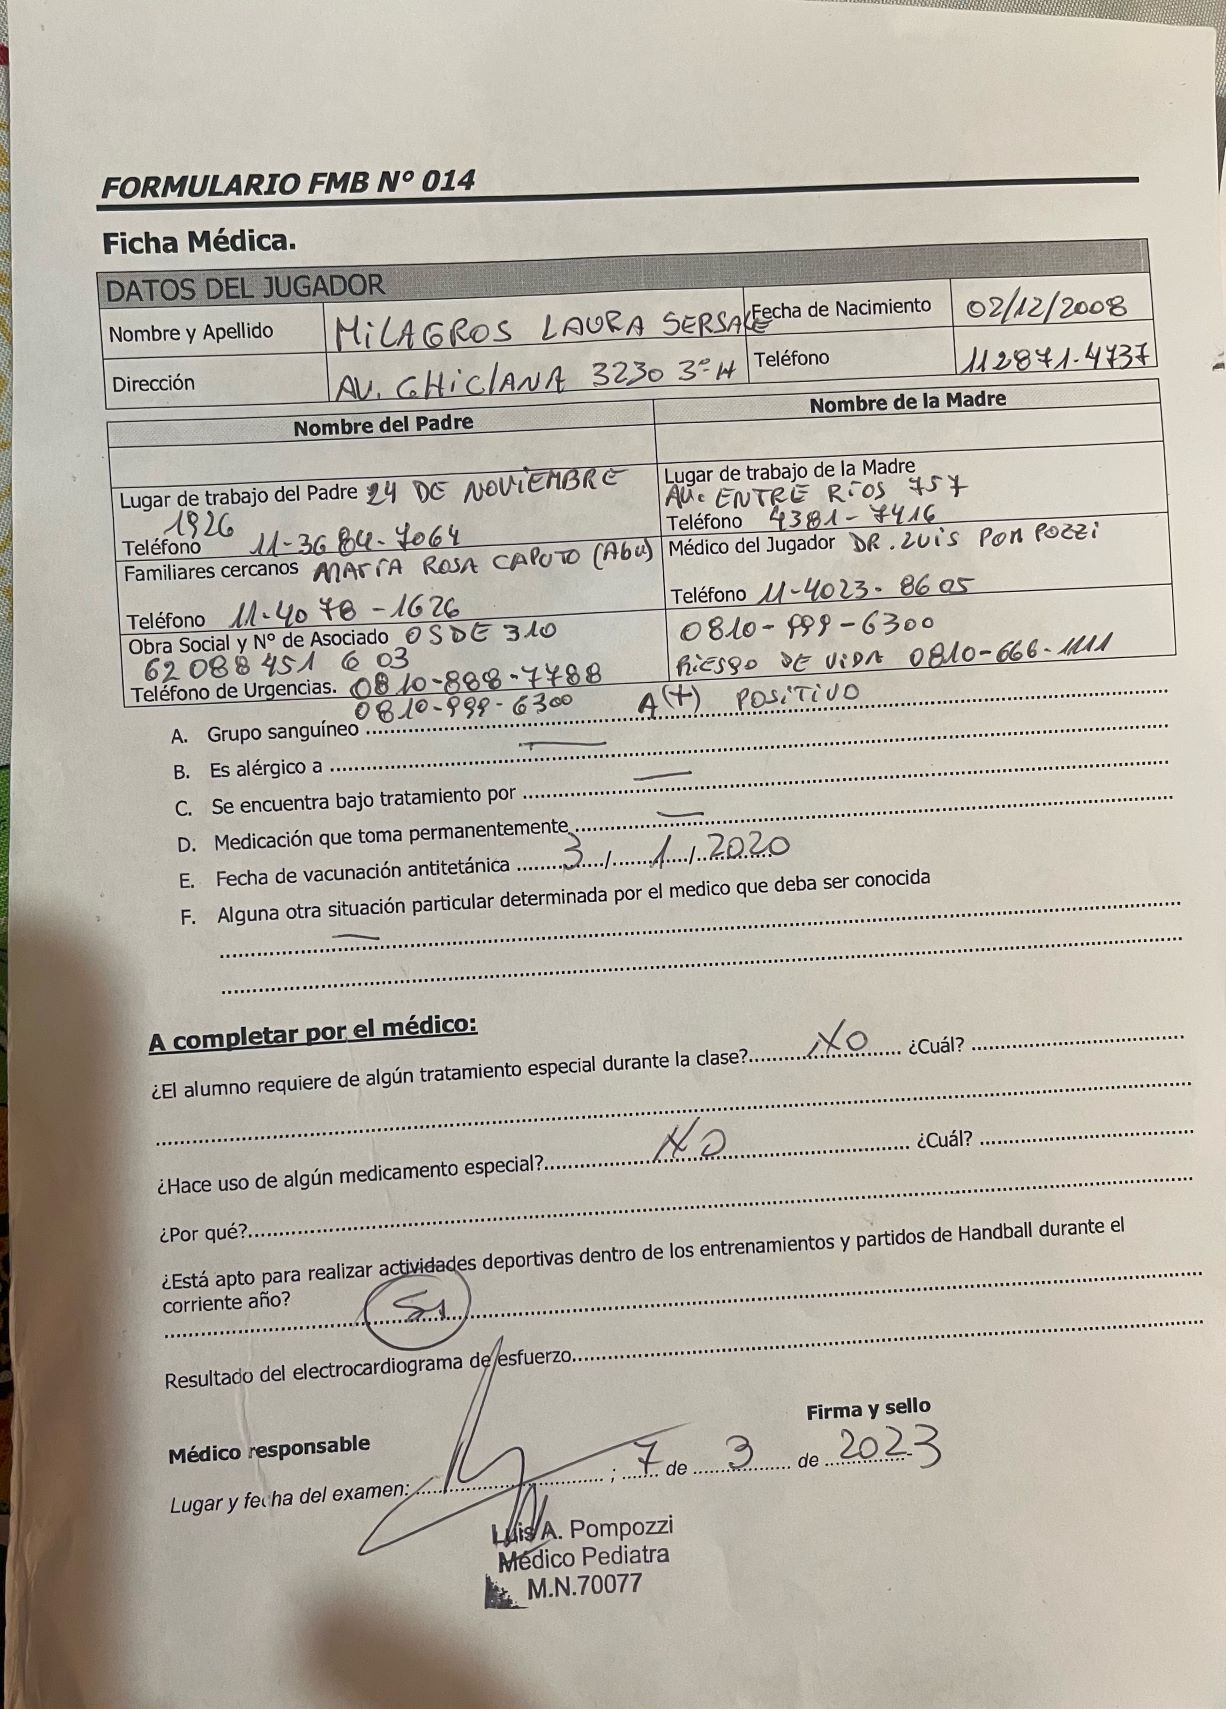 FORMULARIO FMB Nº 014
Ficha Médica.
DATOS DEL JUGADOR
Nombre y Apellido MILAGROS LAURA SERSALE Fecha de Nacimiento 02/12/2008
Dirección AV. CHICLANA 3230 3º H Teléfono 112871-4737
Nombre del Padre Nombre de la Madre
Lugar de trabajo del Padre 24 DE NOVIEMBRE
1926
Teléfono 11-3684-7064
Lugar de trabajo de la Madre
AV. ENTRE RÍOS 757
Teléfono 4381-7416
Familiares cercanos MARÍA ROSA CAPUTO (Abu)
Teléfono 11-4078-1626
Médico del Jugador DR. LUIS POMPOZZI
Teléfono 11-4023-8605
Obra Social y Nº de Asociado OSDE 310
62 088 451 6 03
Teléfono de Urgencias. 0810-888-7788
0810-999-6300
0810-999-6300
RIESGO DE VIDA 0810-666-1111
A. Grupo sanguíneo A(+) POSITIVO
B. Es alérgico a —
C. Se encuentra bajo tratamiento por —
D. Medicación que toma permanentemente —
E. Fecha de vacunación antitetánica 3/1/2020
F. Alguna otra situación particular determinada por el medico que deba ser conocida
—
A completar por el médico:
¿El alumno requiere de algún tratamiento especial durante la clase? NO ¿Cuál?
¿Hace uso de algún medicamento especial? NO ¿Cuál?
¿Por qué?
¿Está apto para realizar actividades deportivas dentro de los entrenamientos y partidos de Handball durante el
corriente año?
SI
Resultado del electrocardiograma de esfuerzo
Firma y sello
Médico responsable
Lugar y fecha del examen: ; 7 de 3 de 2023
Luis A. Pompozzi
Médico Pediatra
M.N.70077